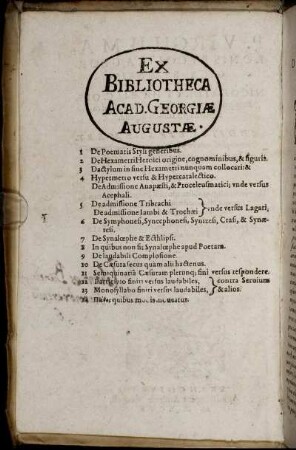 EX
BIBLIOTHECA
ACAD. GEORGIÆ
AUGUSTÆ.
1 De Poematis Styli generibus.
2 De Hexametri Heroici origine, cognominibus, & figuris.
3 Dactylum in fine Hexametri nunquam collocari: &
4 Hypermetro versu & Hypercatalectico.
De Admissione Anapæsti, & Proceleusmatici; vnde versus
Acephali.
5 De admissione Tribrachi } vnde versus Lagari,
De admissione Iambi & Trochæi
6 De Symphonesi, Synecphonesi, Synizesi, Crasi, & Synæ-
resi.
7 De Synalœphe & Ecthlipsi.
8 In quibus non fit Synalœphe apud Poetam.
9 De laudabili Complosione.
10 De Cæsura secus quam alii hactenus.
11 Semiquinariâ Cæsuram plerunq; finî versus respondere.
12 finiri versus laudabiles, } contra Seruium
13 Monosyllabo finiri versus laudabiles, & alios.
14 quibus